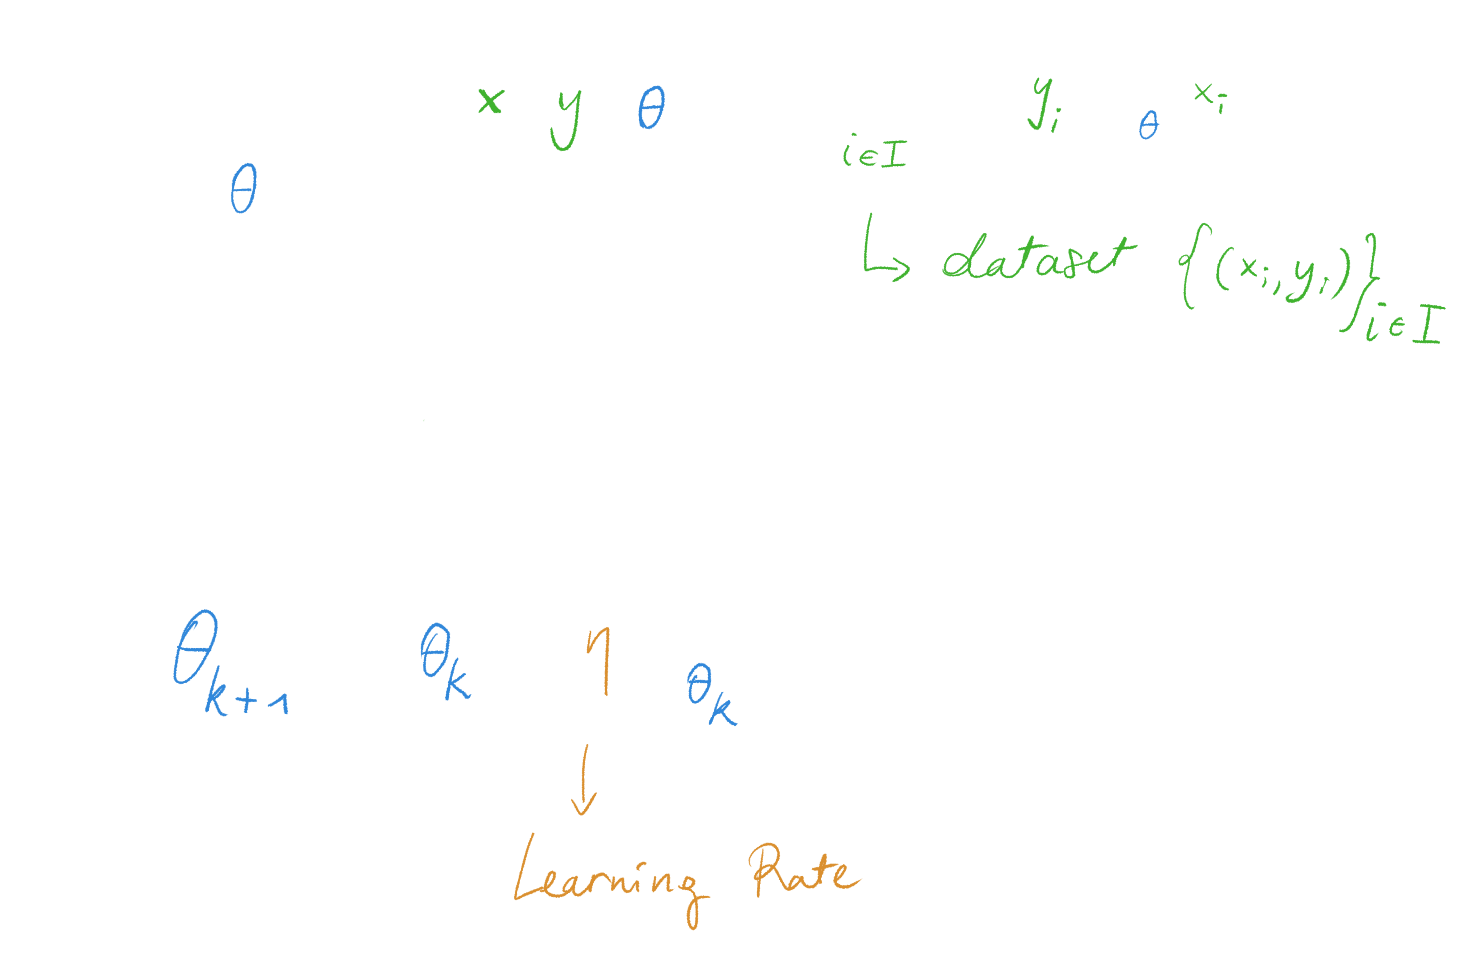 x y θ y_i θ x_i
i∈I
θ
↳ dataset {(x_i, y_i)}_{i∈I}
θ_{k+1} θ_k η θ_k
↓
Learning Rate